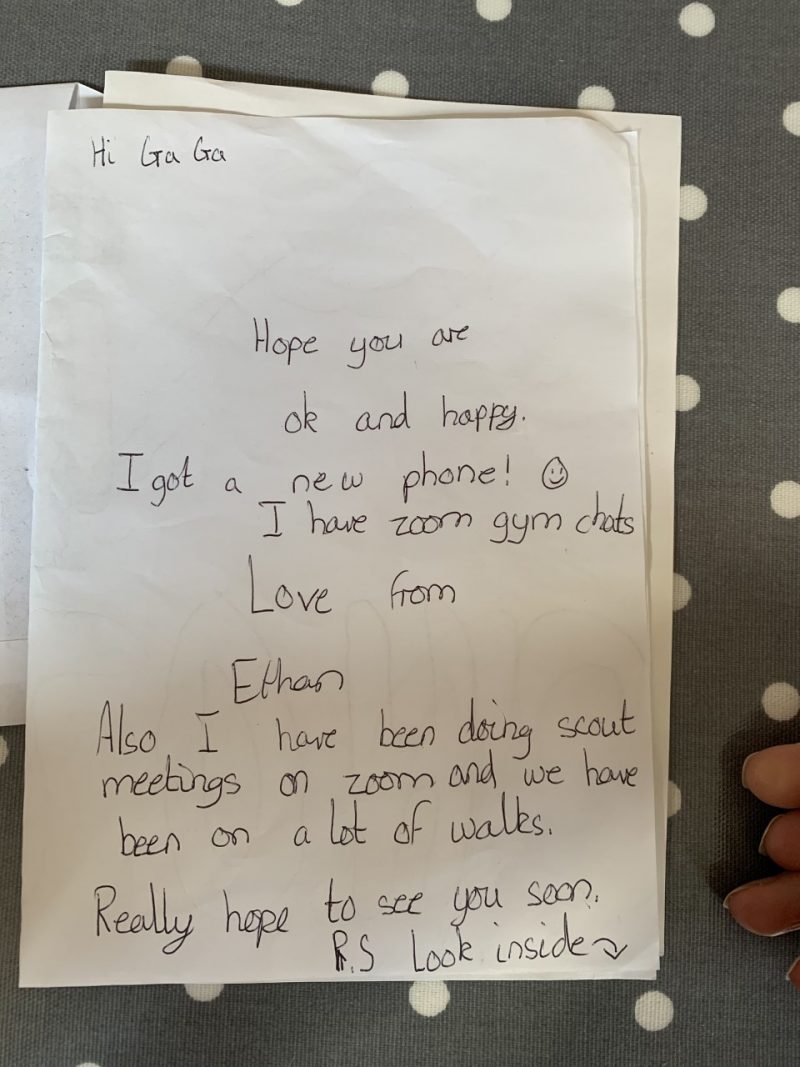 Hi Ga Ga
Hope you are
ok and happy.
I got a new phone! ☺
I have zoom gym chats
Love from
Ethan
Also I have been doing scout
meetings on zoom and we have
been on a lot of walks.
Really hope to see you soon.
P.S Look inside ↷